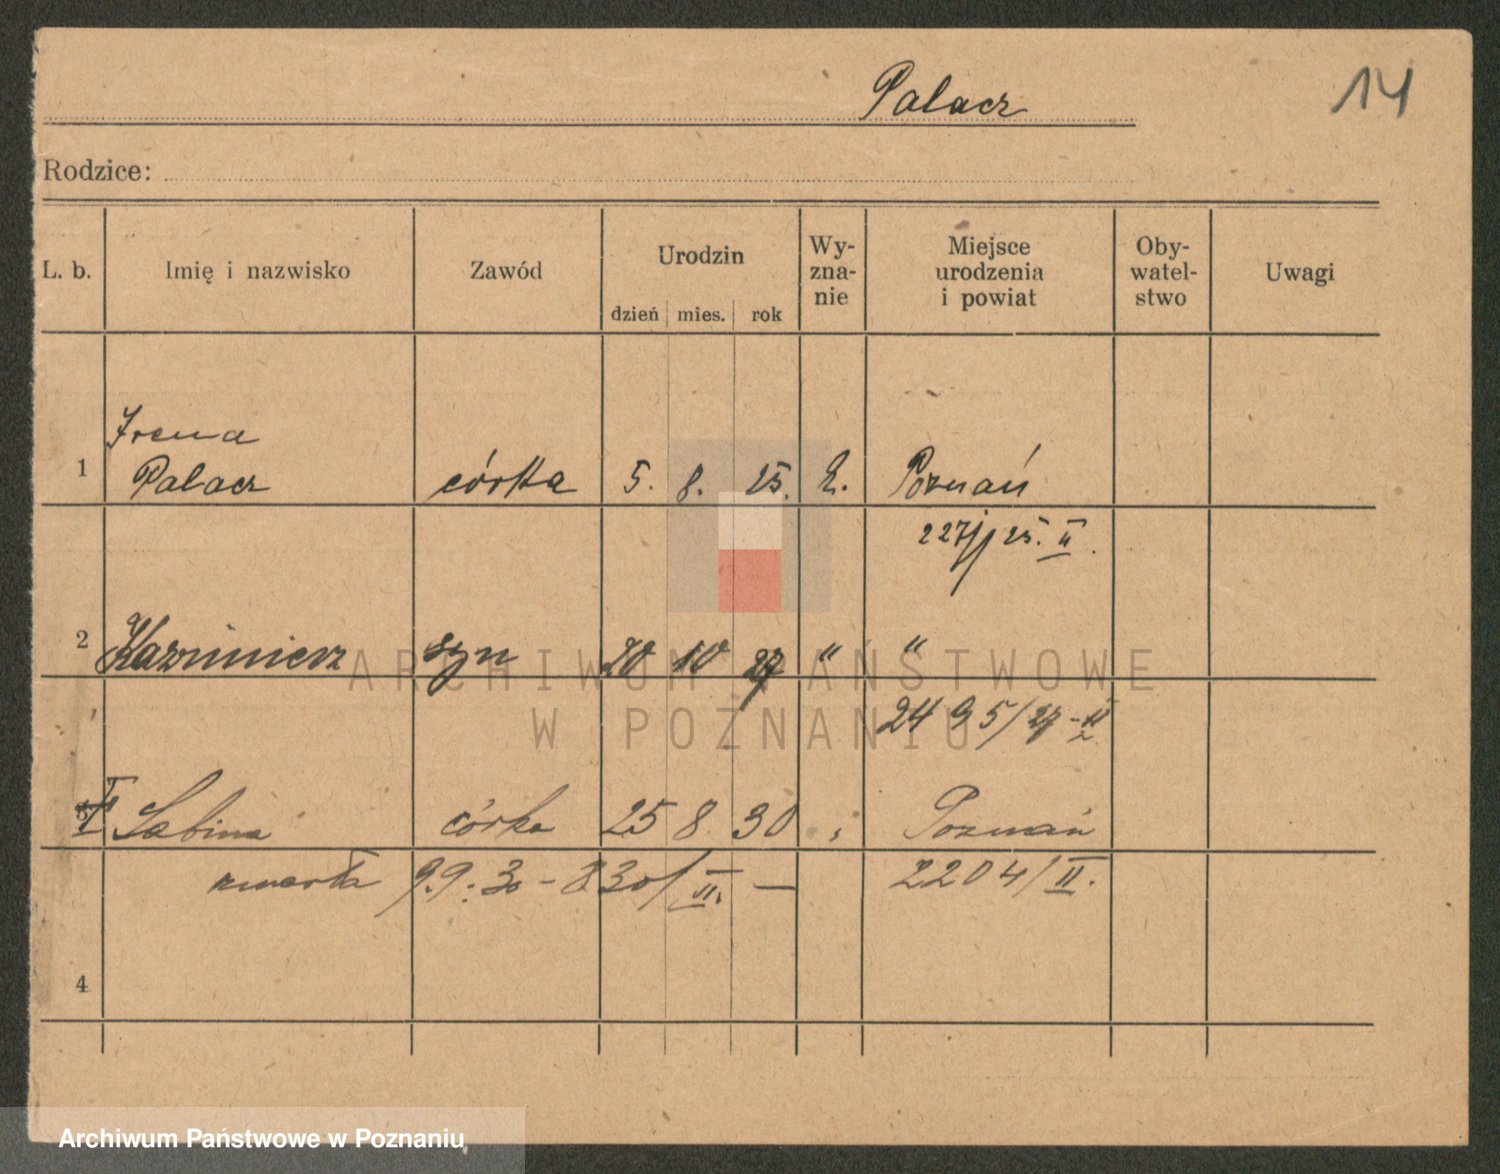 Palacz
14
Rodzice:
L. b. Imię i nazwisko Zawód Urodzin Wy-zna-nie Miejsce urodzenia i powiat Oby-watel-stwo Uwagi
dzień mies. rok
Irena
1 Palacz córka 5. 8. 25. Poznań
227/25. II.
2 Kazimierz syn 20 10 27 " "
2495/27-II
3 Sabina córka 25 8 30 Poznań
zmarła 9.9.30 - 830/II. — 2204/II.
4
ARCHIWUM PAŃSTWOWE
W POZNANIU
Archiwum Państwowe w Poznaniu